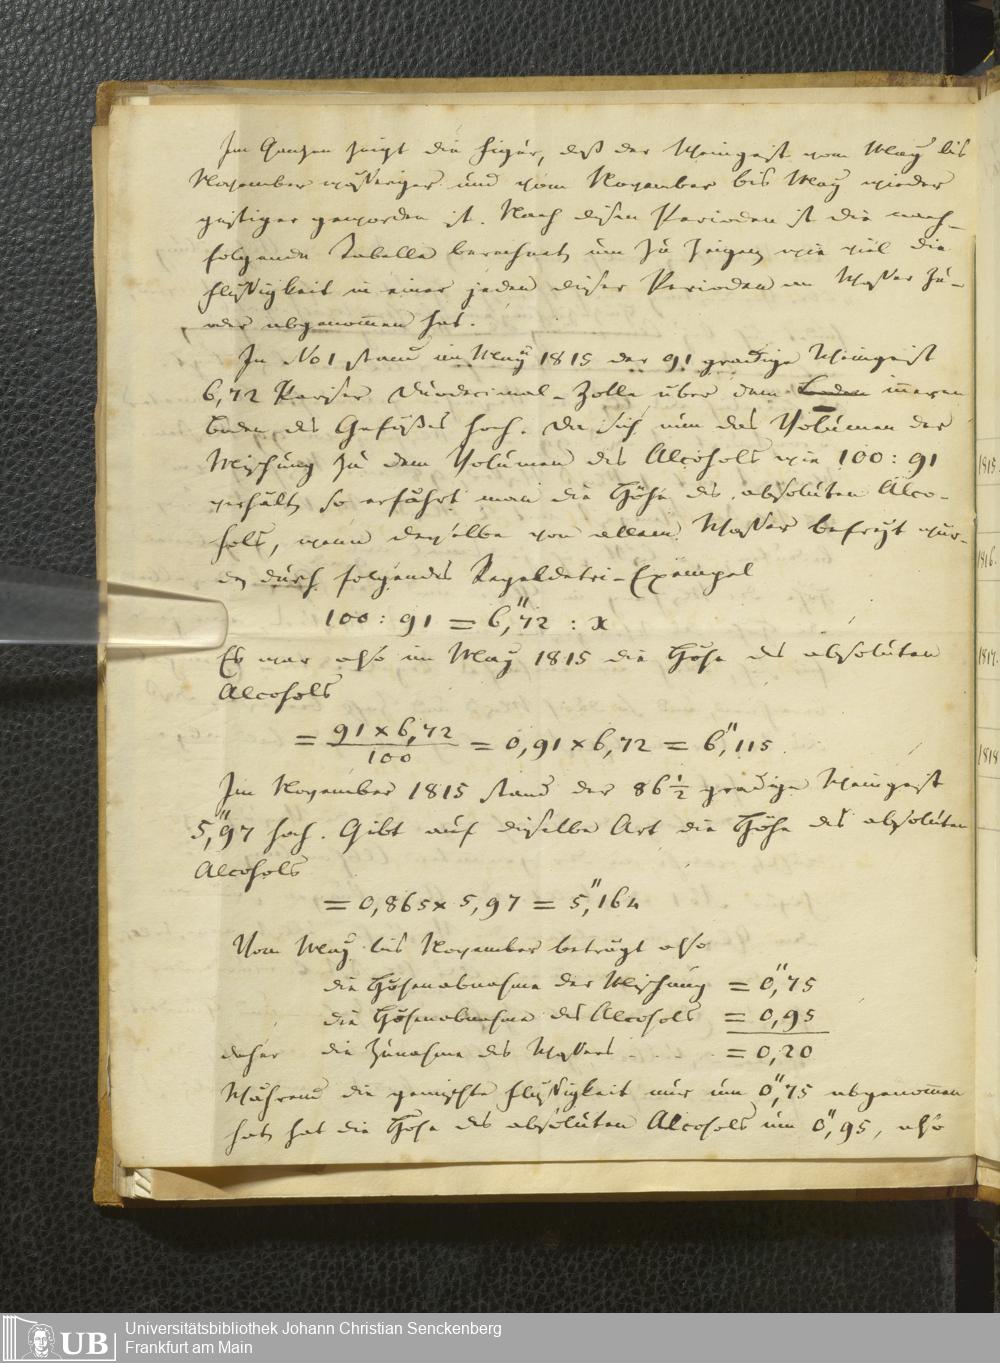 Im Ganzen zeigt die Figur, daß der Weingeist vom May bis
November wäßeriger und vom November bis May wieder
geistiger geworden ist. Nach diesen Perioden ist die nach-
folgende Tabelle berechnet, um zu zeigen, wie viel die
Flüßigkeit in einer jeden dieser Perioden an Waßer zu-
oder abgenom̅en hat.
In No 1 stand im May 1815 der 91 gradige Weingeist
6,72 Pariser Duodecimal-Zolle über dem Boden inneren
Boden des Gefäßes hoch. Da sich nun das Volumen der
Mischung zu dem Volumen des Alcohols wie 100 : 91
verhält, so erfährt man die Höhe des absoluten Alco-
hols, wenn derselbe von allem Waßer befreyt wür-
de, durch folgendes Regeldetri-Exempel
100 : 91 = 6,"72 : x
Es war also im May 1815 die Höhe des absoluten
Alcohols
= 91 x 6,72 / 100 = 0,91 x 6,72 = 6,"115
Im November 1815 stand der 86 1/2 gradige Weingeist
5,"97 hoch. Gibt auf dieselbe Art die Höhe des absoluten
Alcohols
= 0,865 x 5,97 = 5,"164
Vom May bis November beträgt also
die Höhenabnahme der Mischung = 0,"75
die Höhenabnahme des Alcohols = 0,95
daher die Zunahme des Waßers . . . . = 0,20
Während die gemischte Flüßigkeit nur um 0,"75 abgenom̅en
hat, hat die Höhe des absoluten Alcohols um 0,"95, also
1815.
1816.
1817.
1818
UB
Universitätsbibliothek Johann Christian Senckenberg
Frankfurt am Main